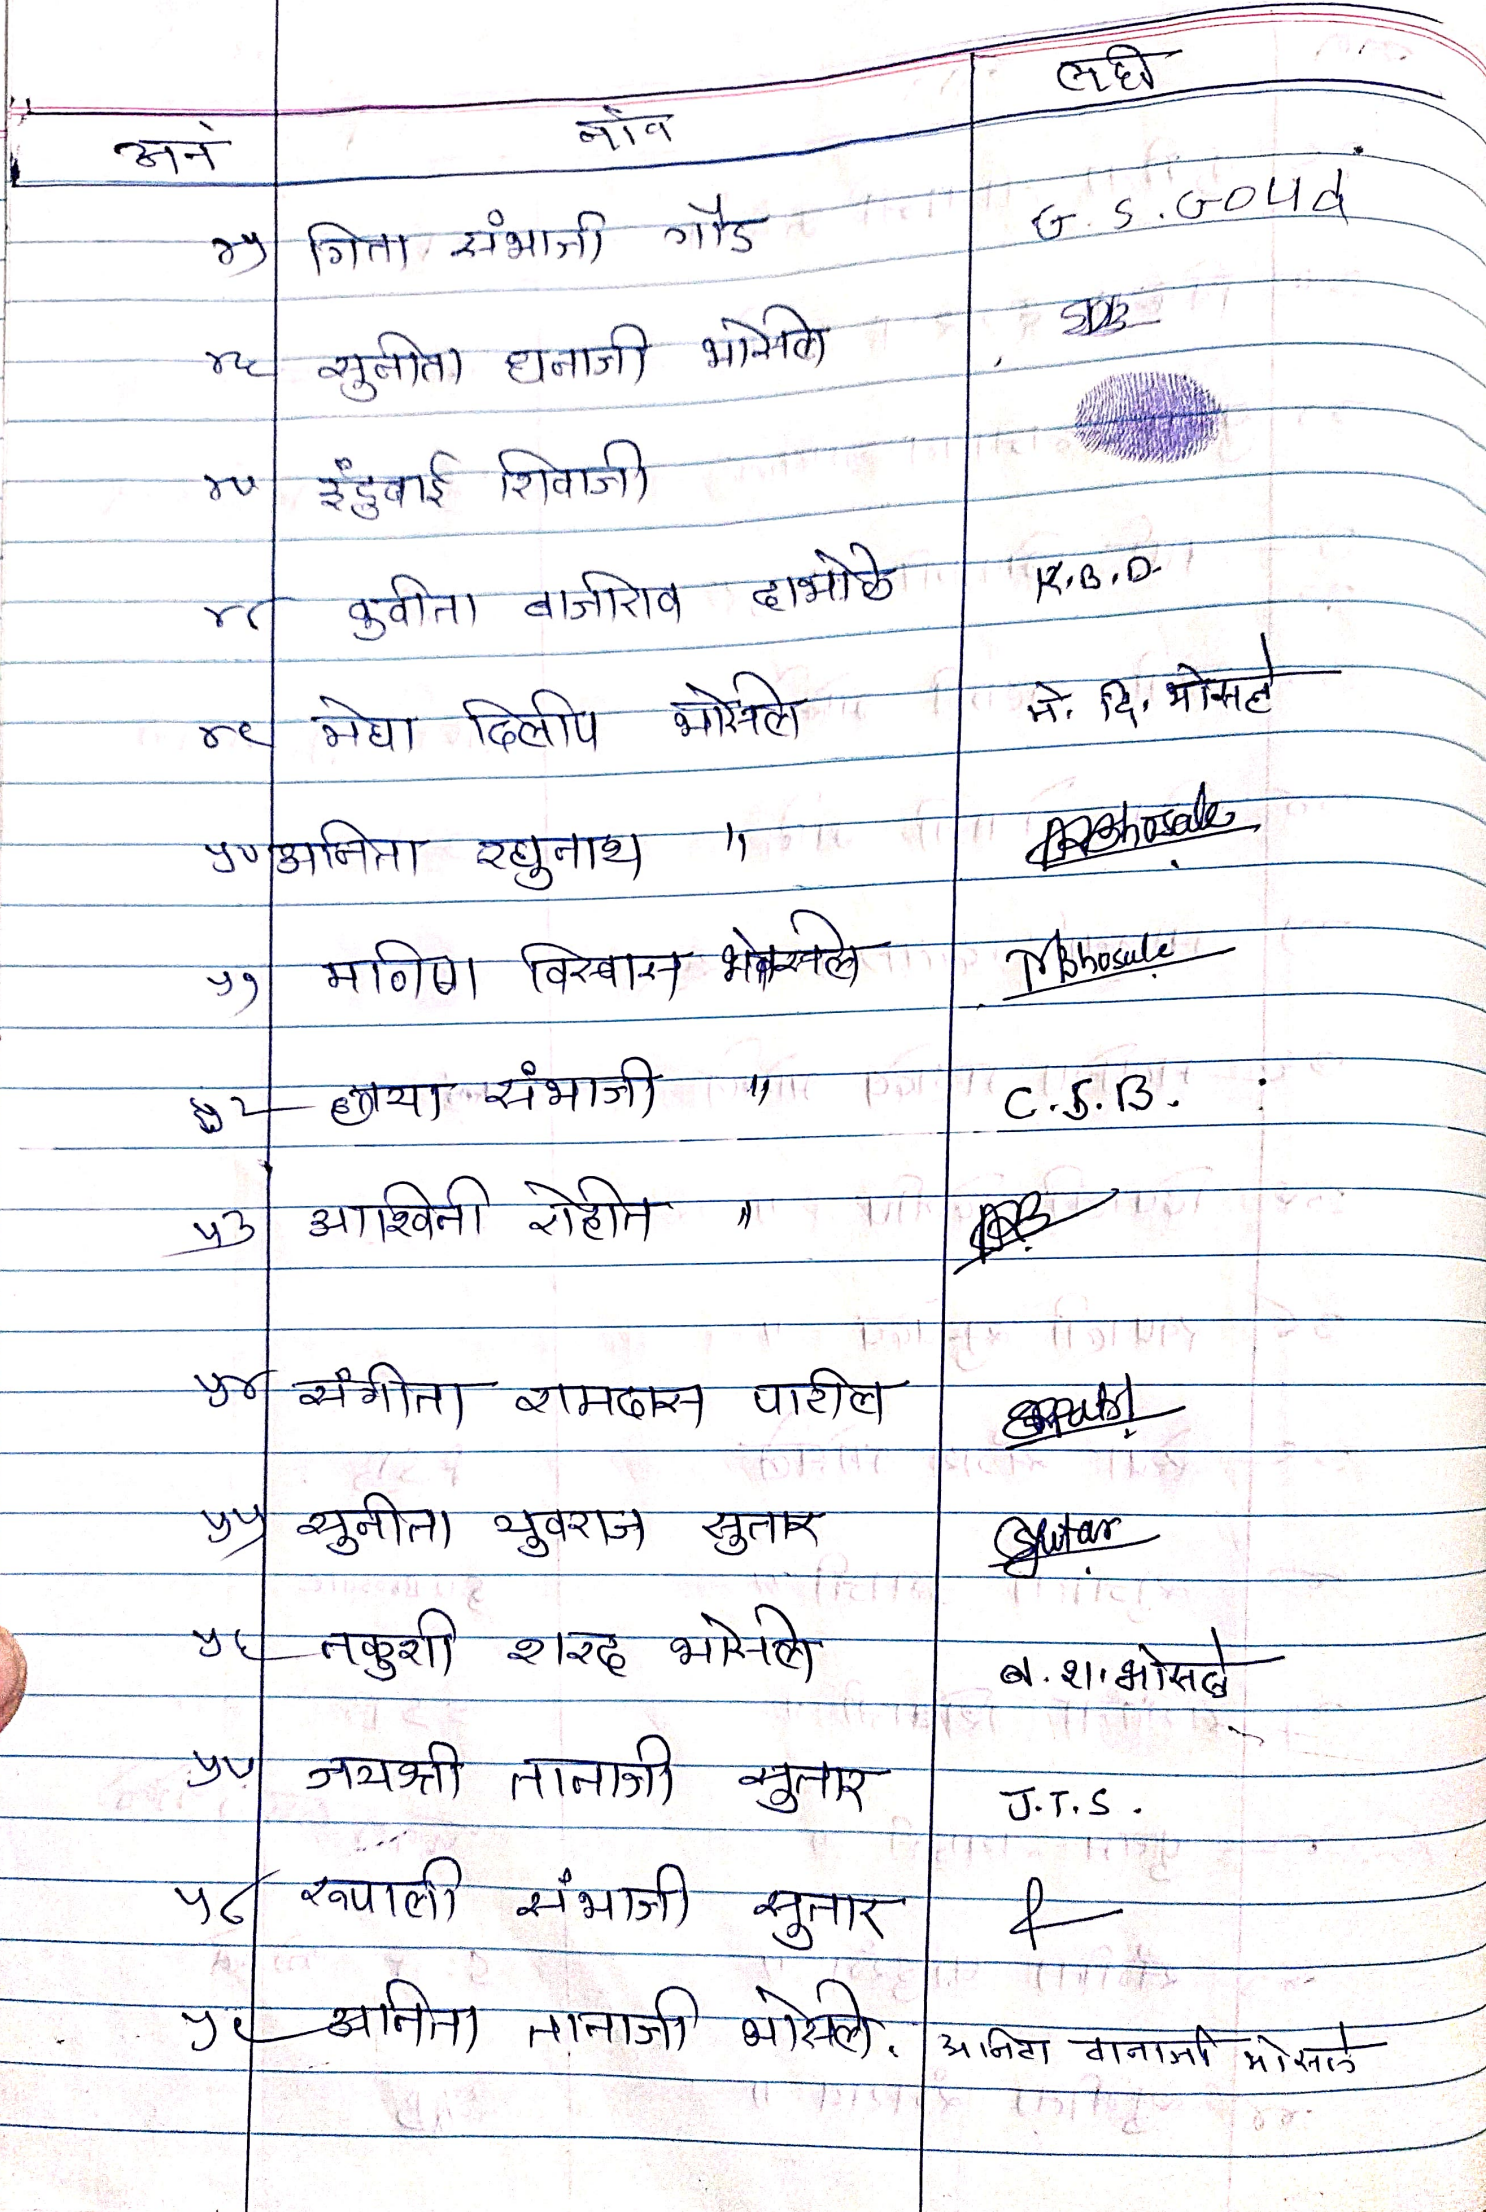 अनं नांव सही
४५ गिता संभाजी गौड G. S. Goud
४६ सुनीता धनाजी भोसले SDB
४७ इंदुबाई शिवाजी
४८ कवीता बाजीराव दाभोळे K.B.D.
४९ मेघा दिलीप भोसले मे. दि. भोसले
५० अनिता रघुनाथ " ARBhosale
५१ विश्वास भोसले Bhosale
५२ छाया संभाजी " C.S.B.
५३ आश्विनी रोहीत " ARB
५४ संगीता रामदास पाटील
५५ सुनीता युवराज सुतार Sutar
५६ नकुशी शरद भोसले न. श. भोसले
५७ जयश्री तानाजी सुतार J.T.S.
५८ रुपाली संभाजी सुतार
५९ अनिता तानाजी भोसले. अनिता तानाजी भोसले